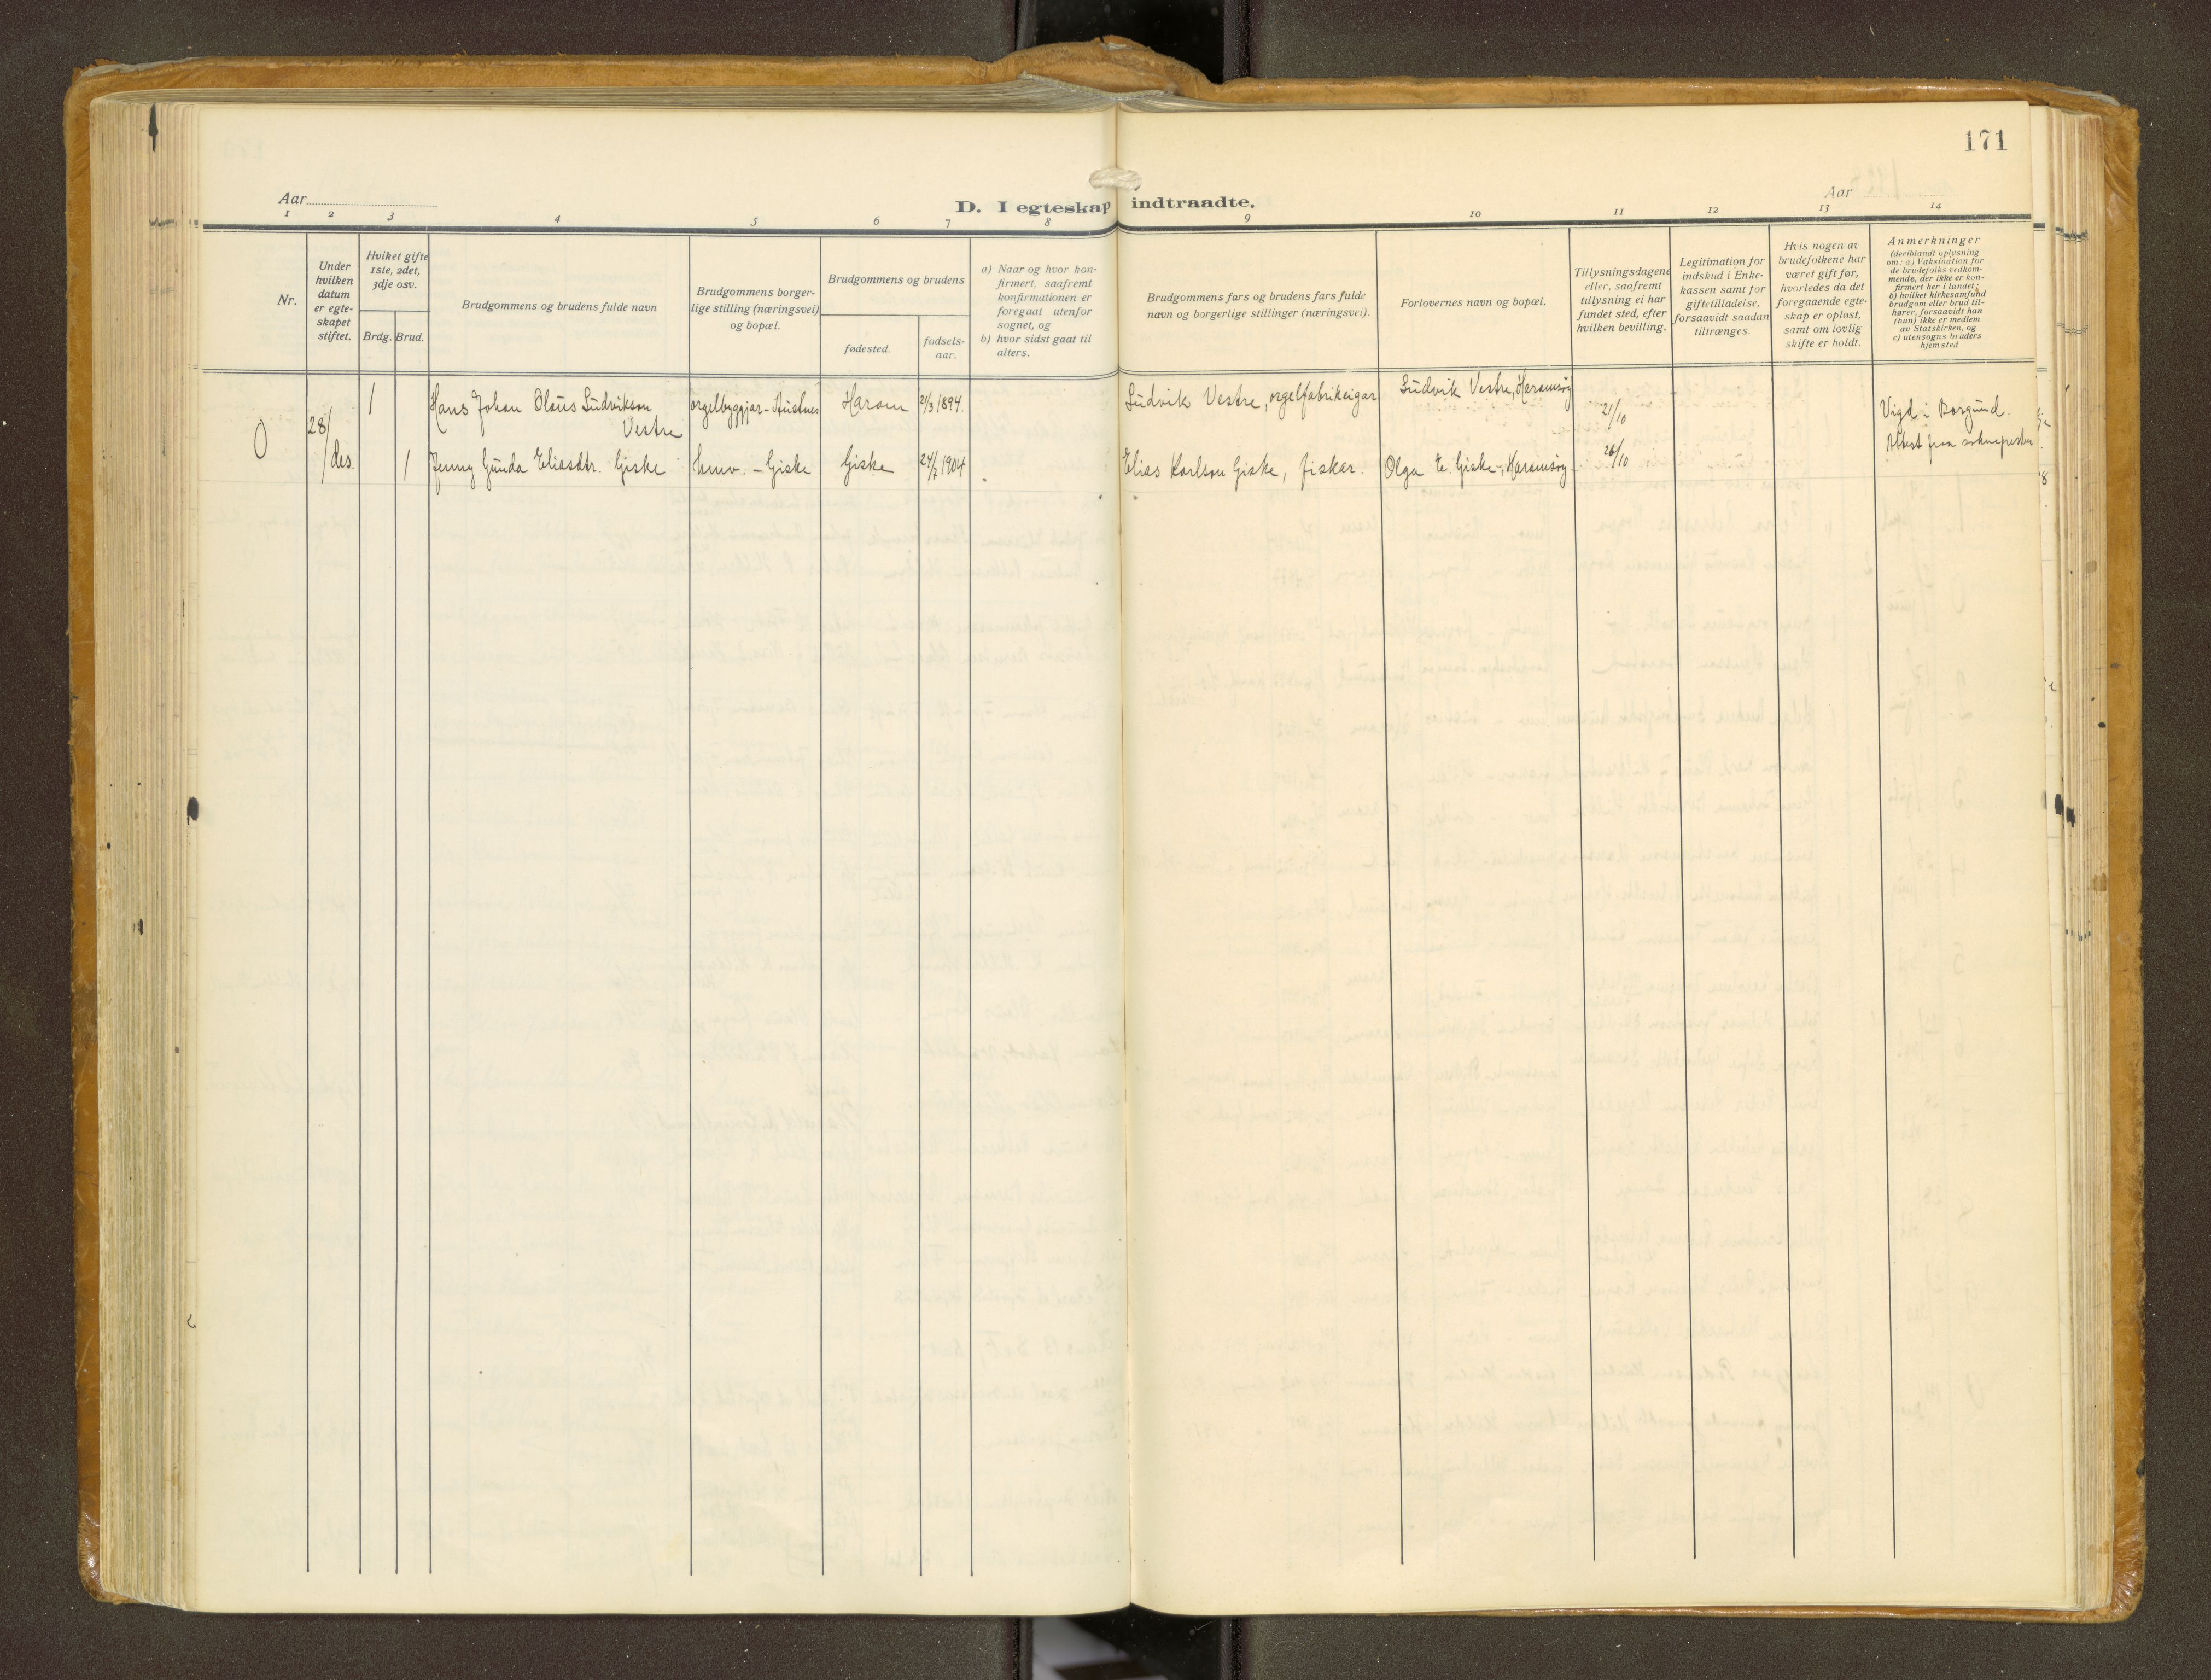 171
Aar
Aar
D. I egteskap indtraadte.
1 2 3 4 5 6 7 8 9 10 11 12 13 14
Nr.
Under
hvilken
datum
er egte-
skapet
stiftet.
Hviket gifte
1ste, 2det,
3dje osv.
Brdg. Brud.
Brudgommens og brudens fulde navn
Brudgommens borger-
lige stilling (næringsvei)
og bopæl.
Brudgommens og brudens
fødested.
fødsels-
aar.
a) Naar og hvor kon-
firmert, saafremt
konfirmationen er
foregaat utenfor
sognet, og
b) hvor sidst gaat til
alters.
Brudgommens fars og brudens fars fulde
navn og borgerlige stillinger (næringsvei).
Forlovernes navn og bopæl.
Tillysningsdagene
eller, saafremt
tillysning ei har
fundet sted, efter
hvilken bevilling.
Legitimation for
indskud i Enke-
kassen samt for
giftetilladelse,
forsaavidt saadan
tiltrænges.
Hvis nogen av
brudefolkene har
været gift før,
hvorledes da det
foregaaende egte-
skap er opløst,
samt om lovlig
skifte er holdt.
Anmerkninger
(deriblandt oplysning
om: a) Vaksination for
de brudefolks vedkom-
mende, der ikke er kon-
firmert her i landet;
b) hvilket kirkesamfund
brudgom eller brud til-
hører, forsaavidt han
(hun) ikke er medlem
av Statskirken, og
c) utensogns bruders
hjemsted
0 28/des.
1 Hans Johan Olaus Ludvikson
Vestre
orgelbyggjar - Austnes Haram 21/3 1894.
Ludvik Vestre, orgelfabrikeigar
Ludvik Vestre, Haramsøy
21/10
Vigd i Borgund.
Attest fraa soknepresten
1 Jenny Gunda Eliasdtr. Giske
huv. - Giske Giske 24/7 1904
Elias Karlson Giske, fiskar.
Olga E. Giske, Haramsøy
28/10